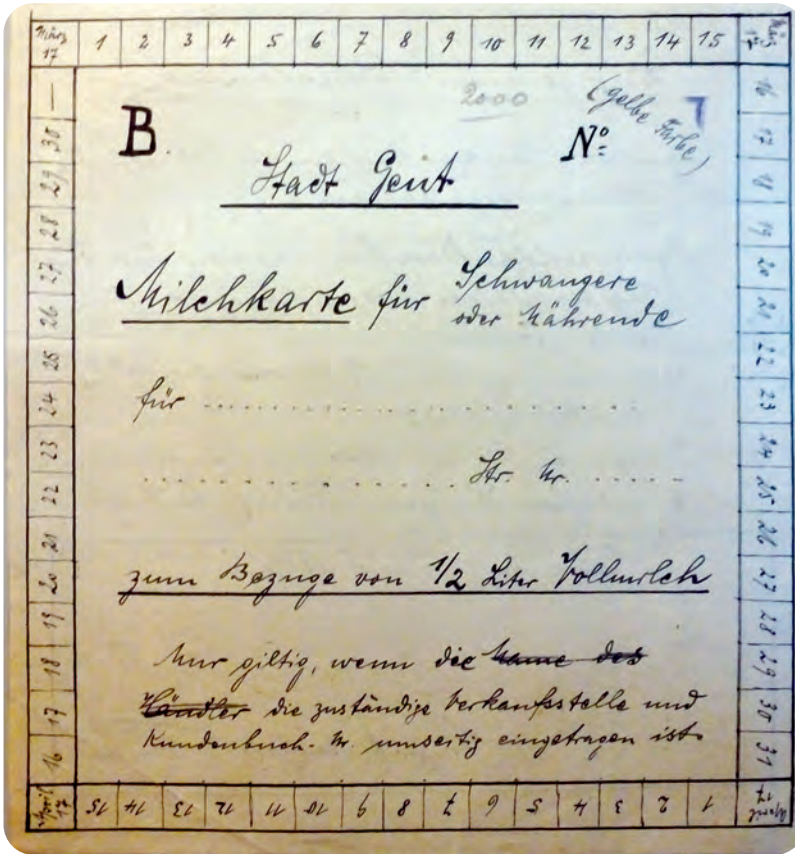 März 17 1 2 3 4 5 6 7 8 9 10 11 12 13 14 15 März 17
16 17 18 19 20 21 22 23 24 25 26 27 28 29 30 31
B. 2000 Nº (gelbe Farbe) 7
Stadt Gent
Milchkarte für Schwangere
oder Nährende
für ....................
.................... Str. Nr. ......
zum Bezuge von 1/2 Liter Vollmilch
Nur giltig, wenn die Name des
Händler die zuständige Verkaufsstelle und
Kundenbuch-Nr. umseitig eingetragen ist.
April 17 1 2 3 4 5 6 7 8 9 10 11 12 13 14 15 April 17
16 17 18 19 20 21 22 23 24 25 26 27 28 29 30 —